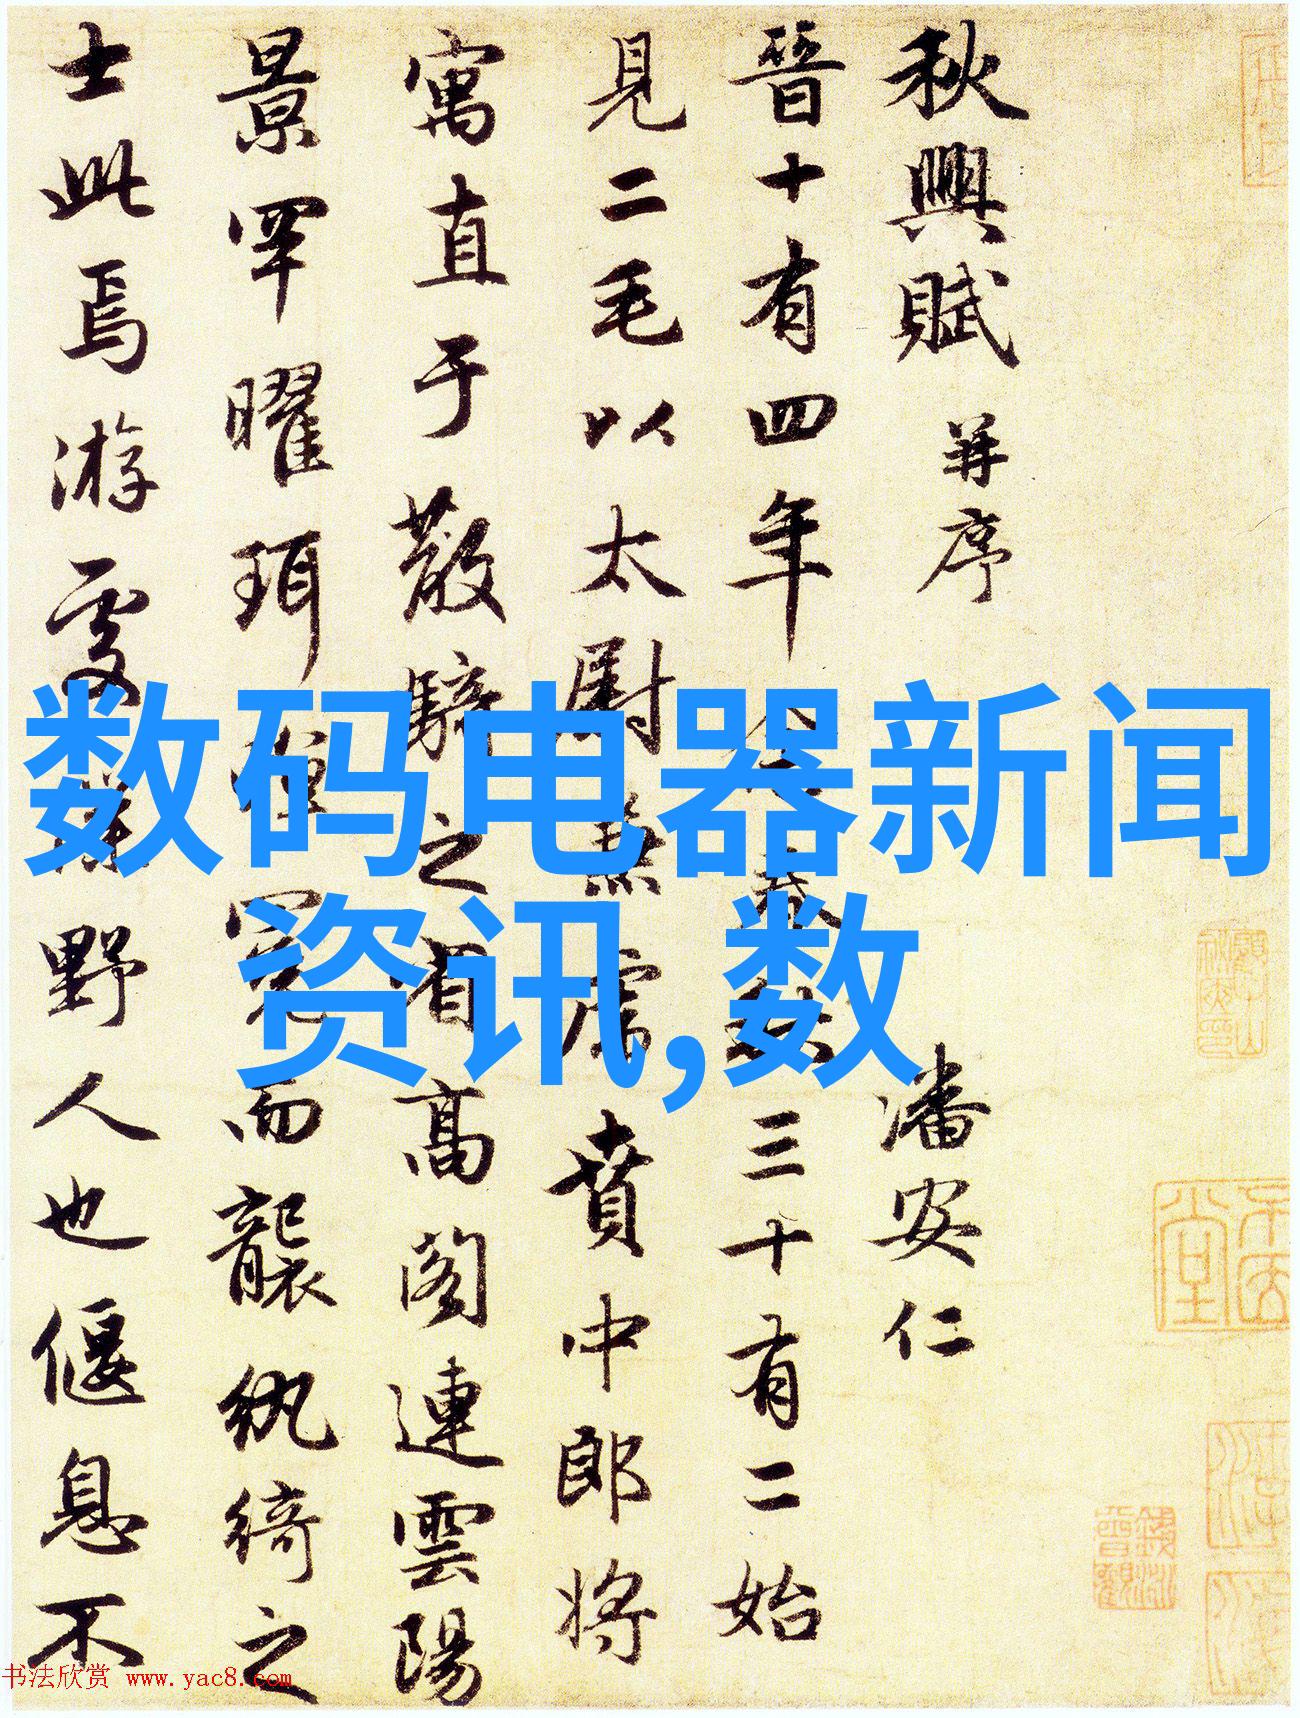 秋興賦 并序 潘安仁
晉十有四年余春秋三十有二始
見二毛以太尉兼虎賁中郎将
寓直于散騎之省高閣連雲陽
景罕曜珥蟬冕而襲紈綺之
士此焉游處僕野人也偃息不
数码电器新闻
资讯,数
书法欣赏 www.yac8.com